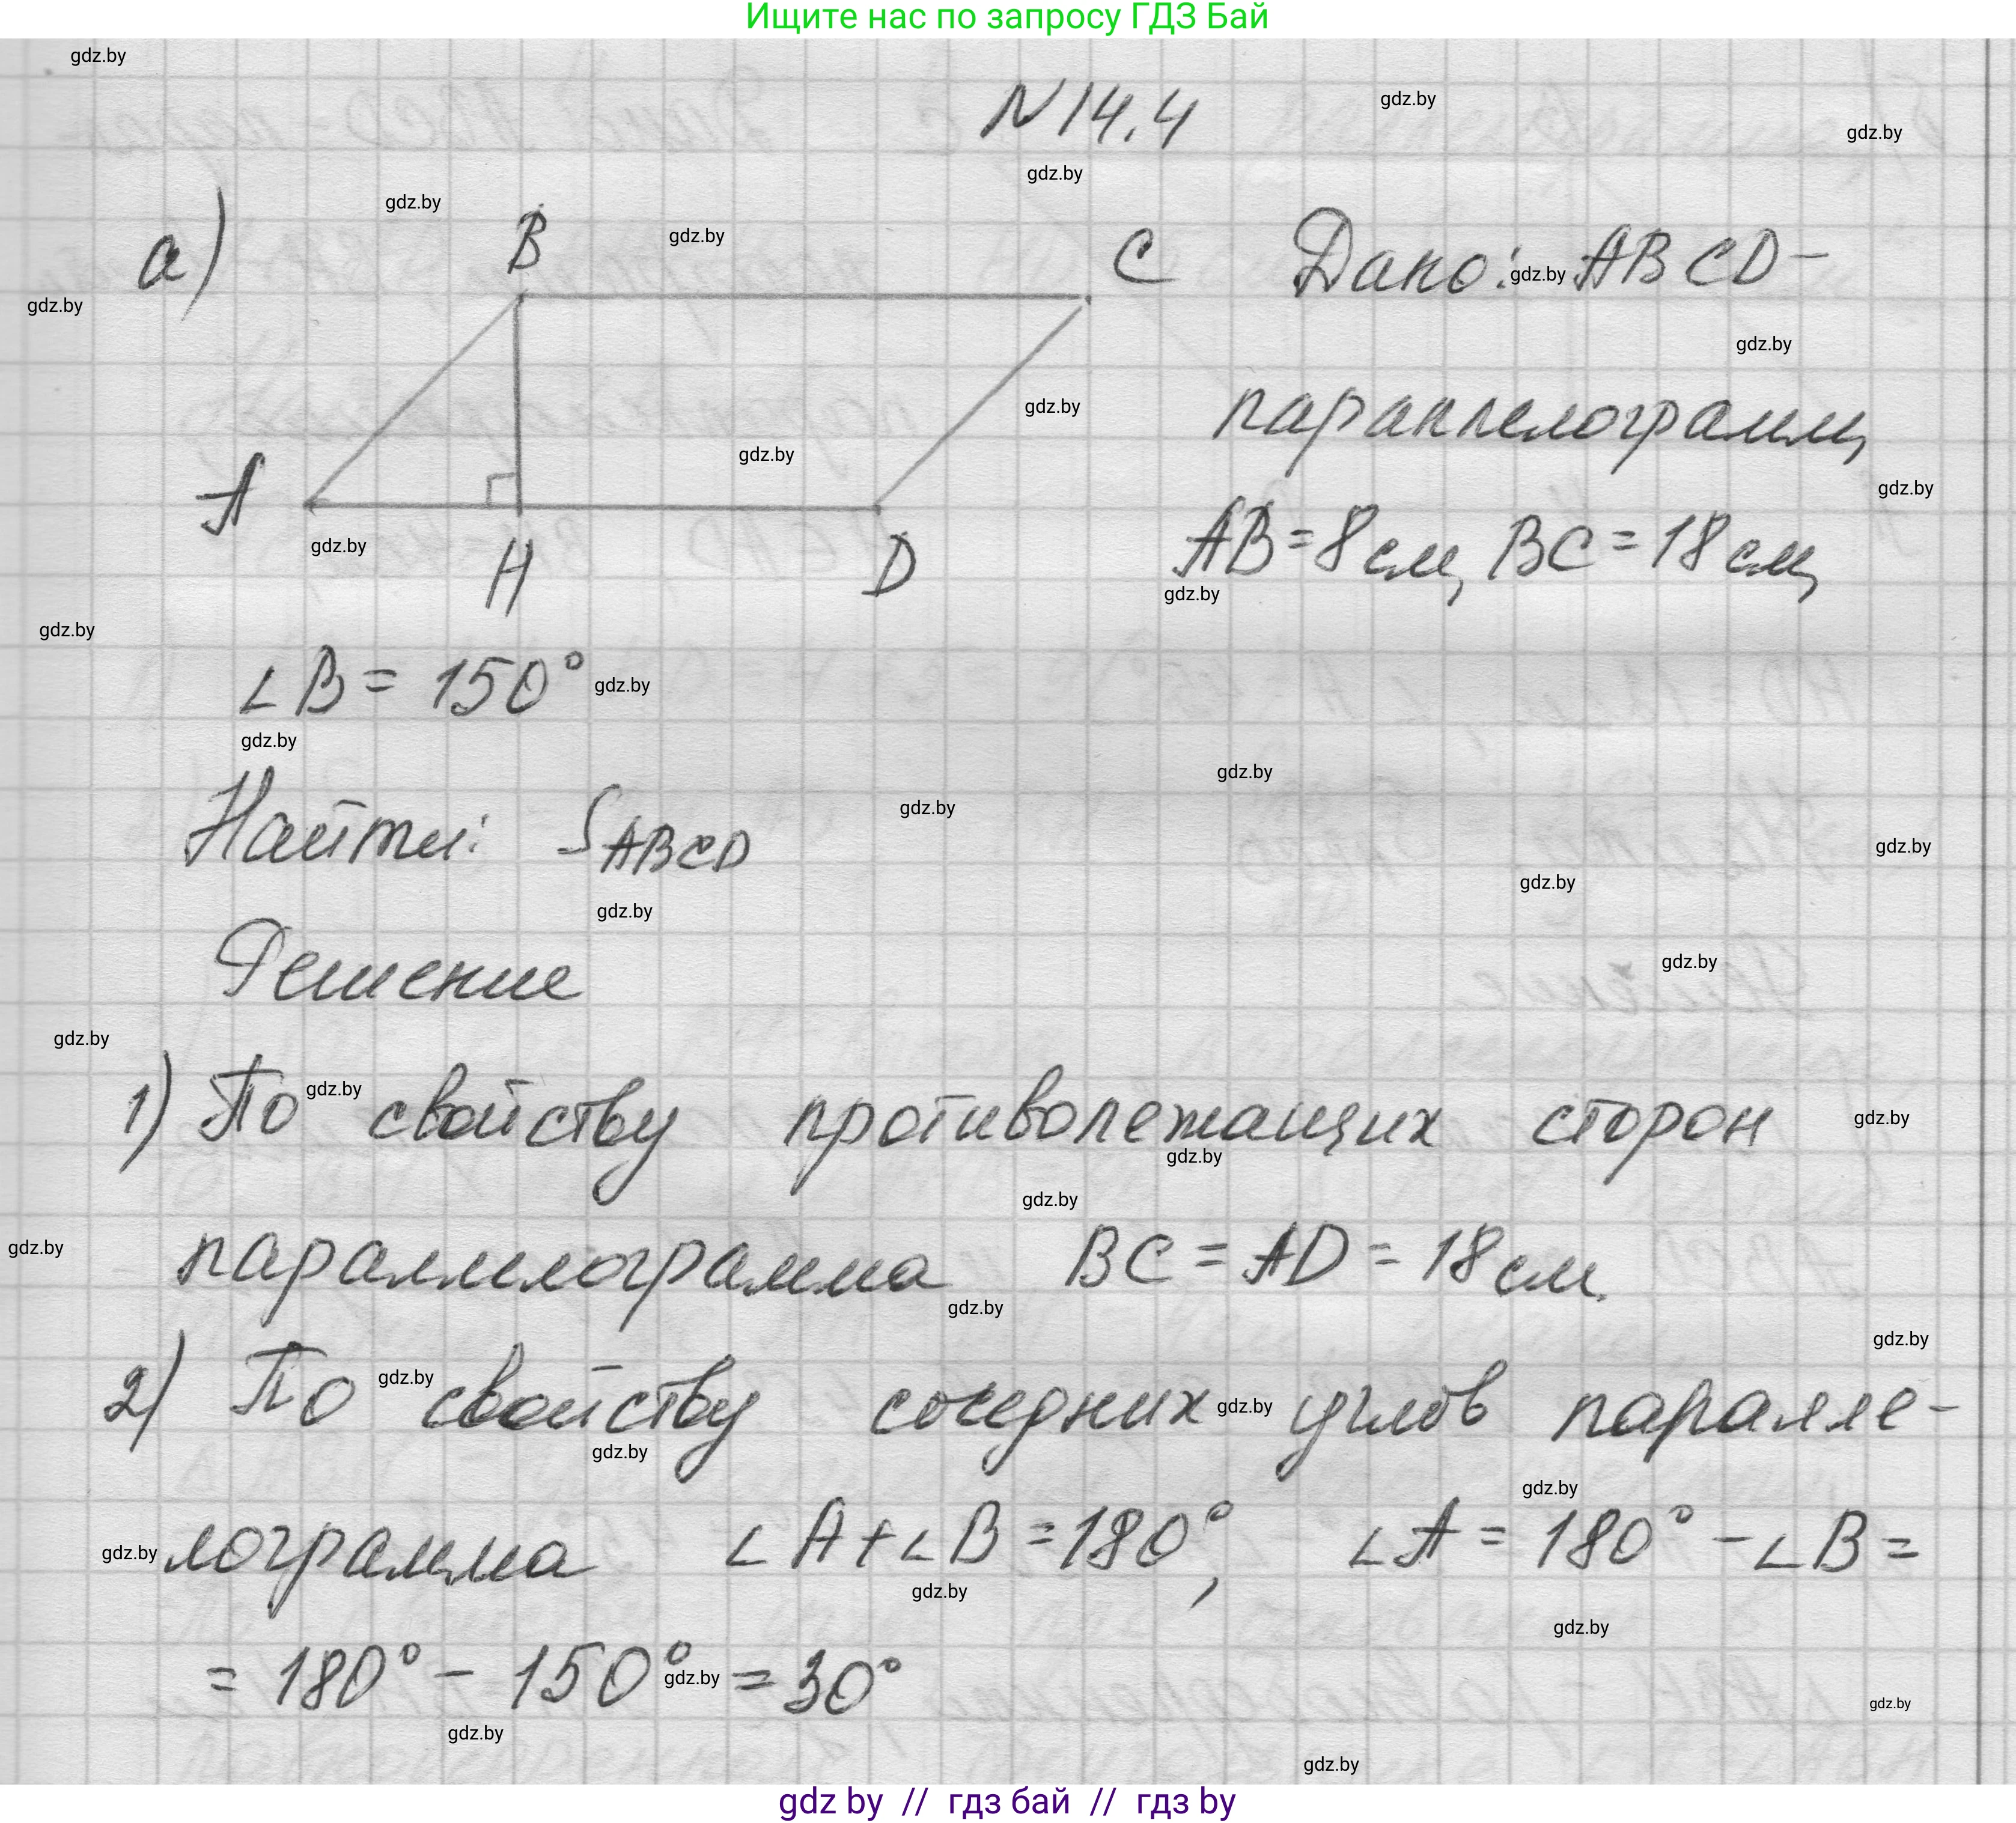 Ищите нас по запросу ГДЗ Бай
N14.4
а)
B
C
A
H
D
Дано: ABCD-
параллелограмм,
AB=8см, BC=18см,
∠B= 150°
Найти: S ABCD
Решение
1) По свойству противолежащих сторон
параллелограмма BC=AD=18см.
2) По свойству соседних углов паралле-
лограмма ∠A+∠B=180°, ∠A=180°-∠B=
=180°-150°=30°
gdz by // гдз бай // гдз by
gdz.by